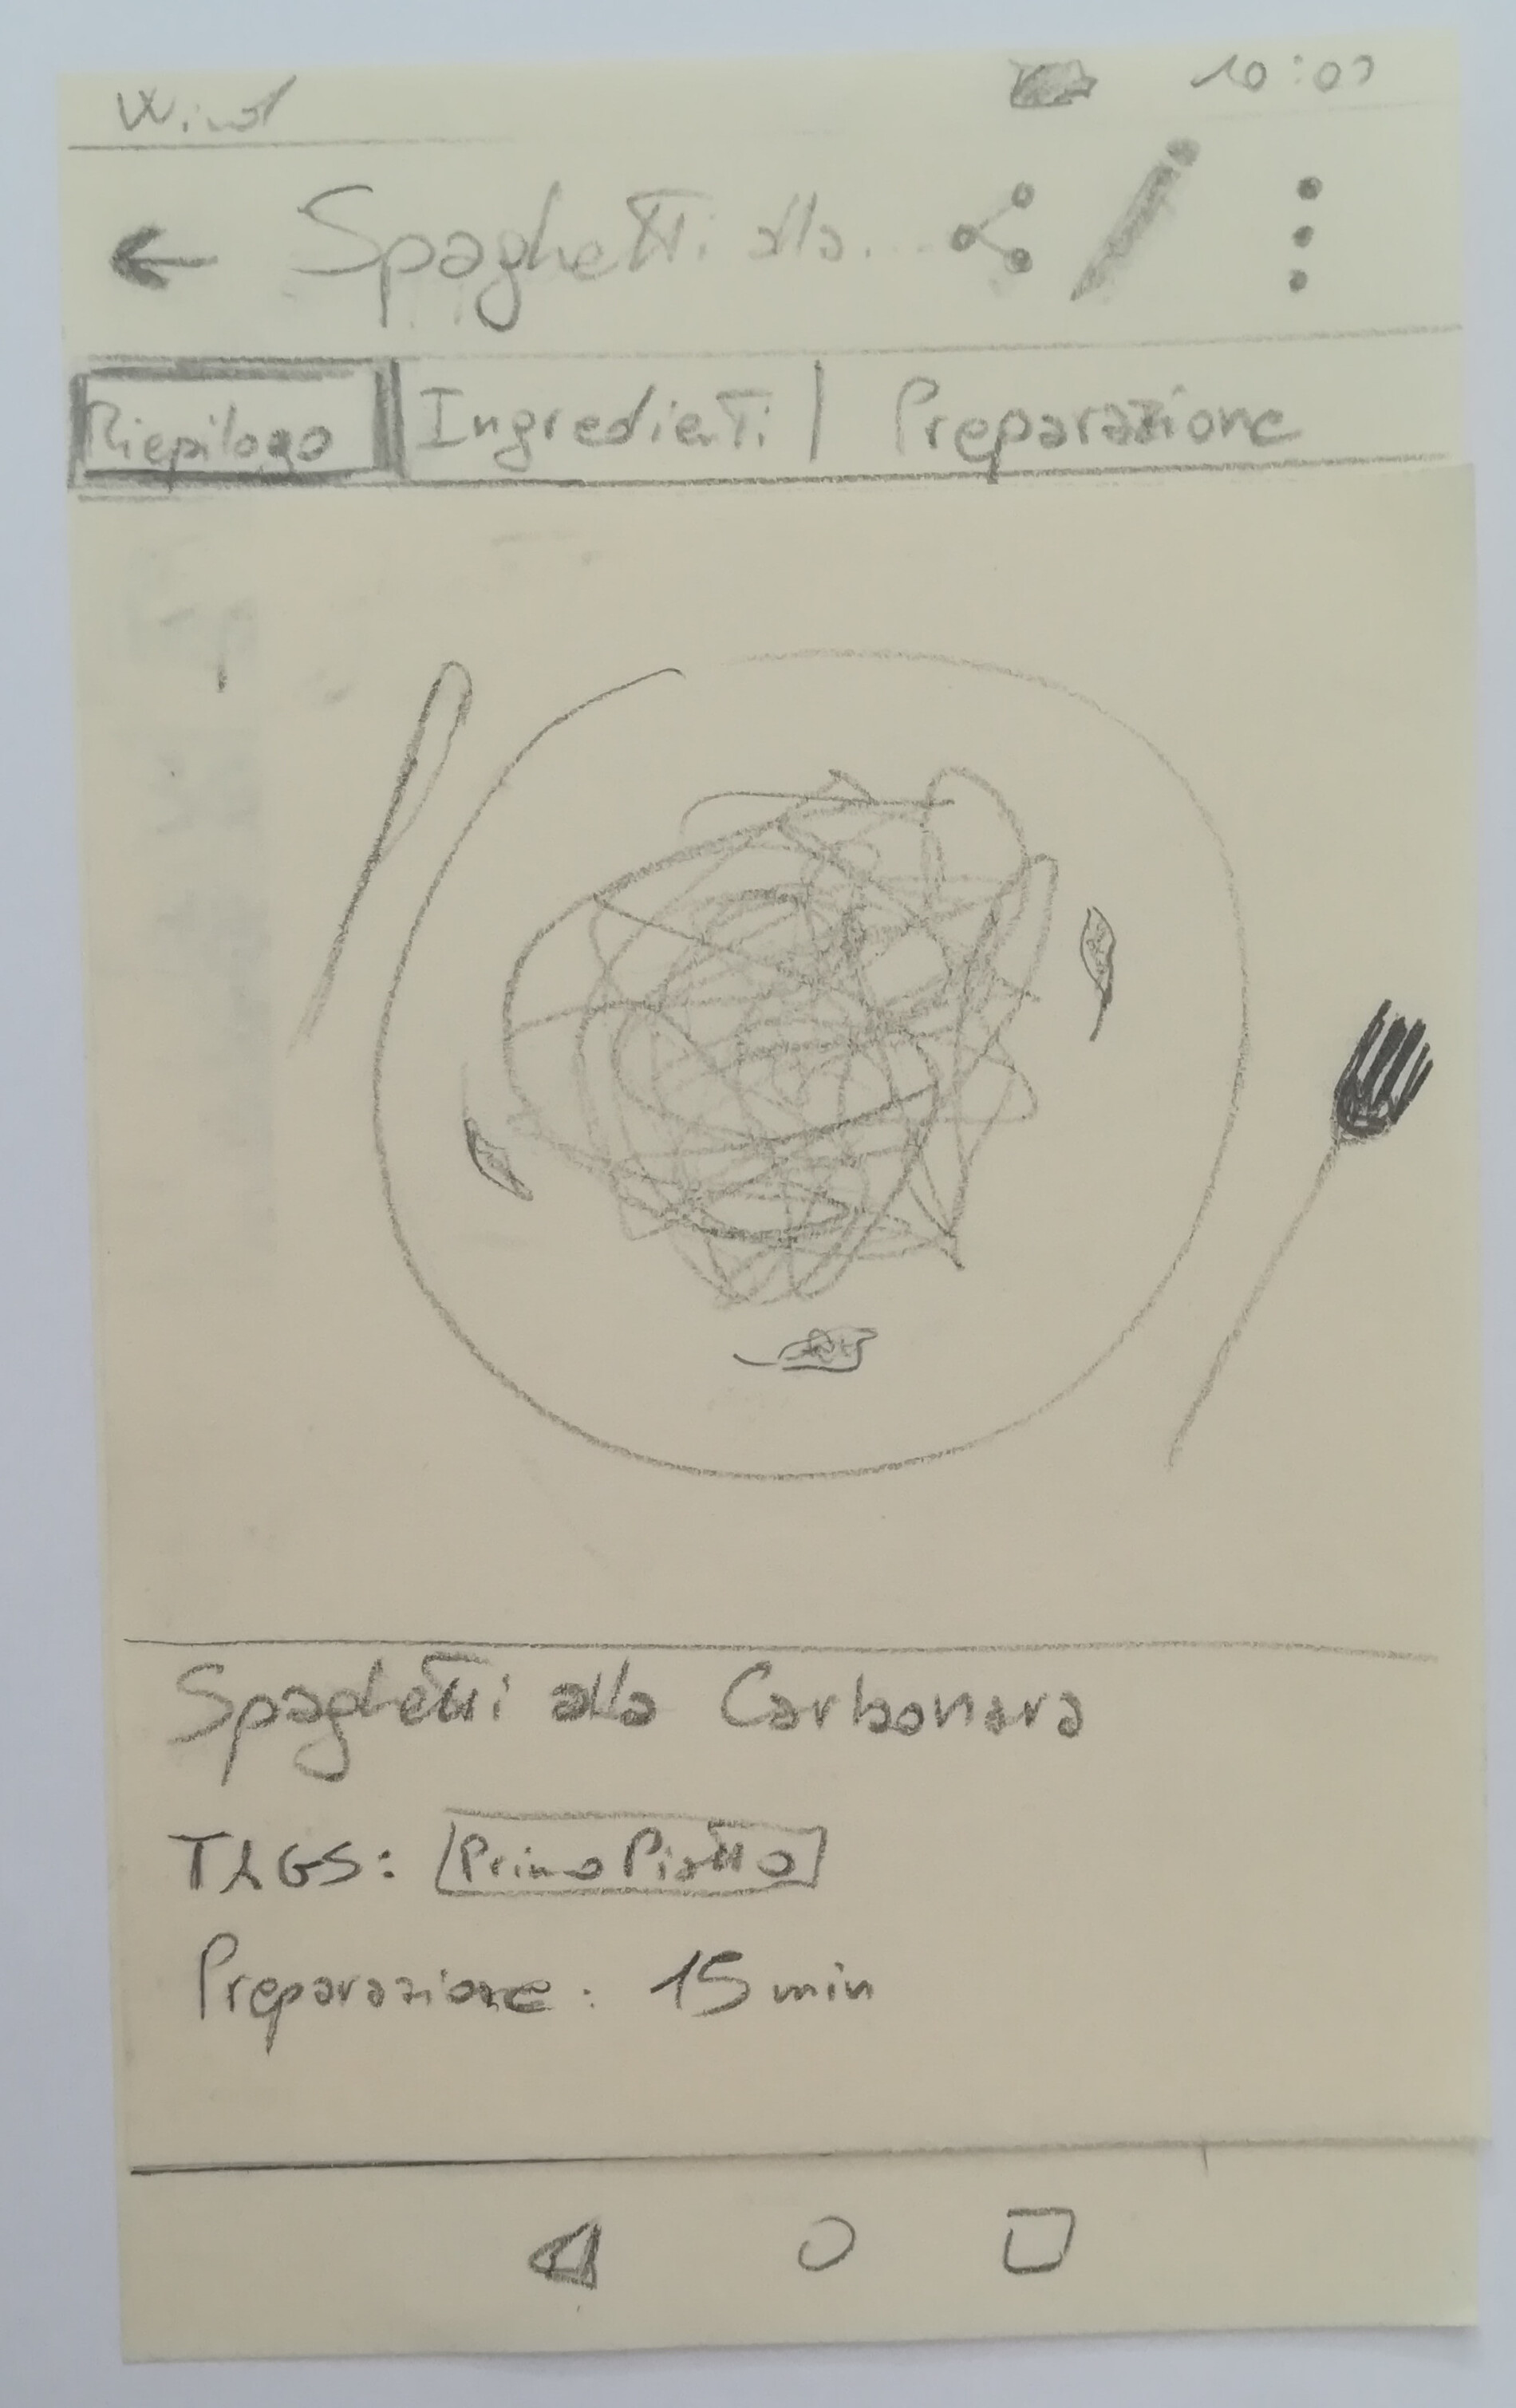 Wind 10:00
Spaghetti alla...
Riepilogo | Ingredienti | Preparazione
Spaghetti alla Carbonara
TAGS: Primo Piatto
Preparazione: 15 min